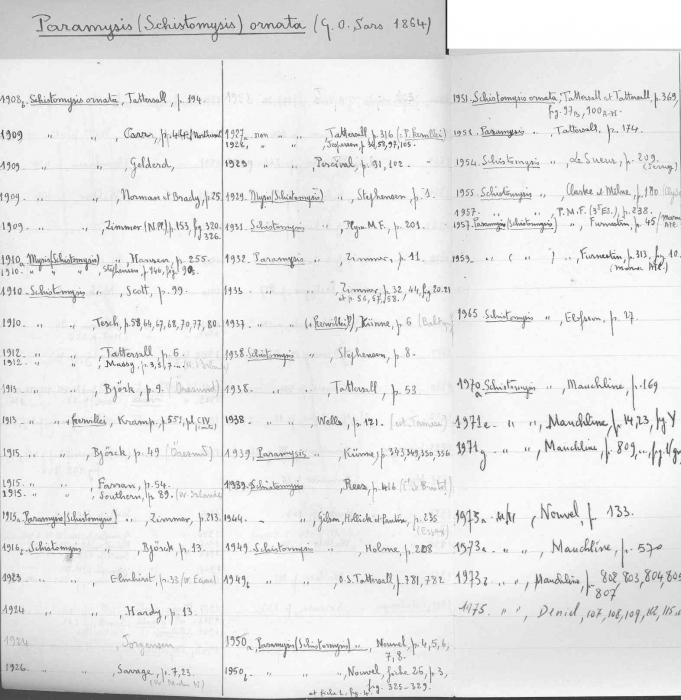 Paramysis (Schistomysis) ornata (G.O. Sars 1864)
1908b Schistomysis ornata, Tattersall, p. 194
1909 " " , Carr, p. 44
1909 " " , Gelderd,
1909 " " , Norman et Brady, p. 25
1909 " " , Zimmer (N.Pl) p. 153, fig 320.
326.
1910a Mysis (Schistomysis) " , Hansen, p. 255.
1910. " " Stephensen p. 140, fig
1910 Schistomysis " , Scott, p. 99.
1910 " " , Tesch, p. 58, 64, 67, 68, 70, 77, 80.
1912 " " , Tattersall p. 6
1912 " " , Massy, p. 3, 5, 7
1913 " " , Björk, p. 9. (Öresund)
1913 " " + kervillei, Kramp, p. 551, pl CIV
1915 " " , Björck, p. 49 (Öresund)
1915. " " , Farran, p. 54.
1915. " " , Southern, p. 89. (W. Irlande)
1915a Paramysis (Schistomysis) " , Zimmer, p. 213.
1916c Schistomysis " , Björck, p. 13.
1923 " " , Elmhirst, p. 33
1924 " " , Hardy, p. 13.
1924 Jorgensen
1926 " " , Savage, p. 7, 23.
1927a non " " Tattersall, p. 316 (: P. Kervillei)
1928, " " , Jespersen, p. 105.
1929 " " , Percival, p. 91, 102.
1929. Mysis (Schistomysis) " , Stephensen, p. 1.
1931. Schistomysis " , Plym M.F., p. 201.
1932. Paramysis " , Zimmer, p. 11.
1933 " " , Zimmer, p. 32, 44, fig 20.21
et p. 56, 57, 58.
1937 " " (+ Kervillei), Künne, p. 6
1938. Schistomysis " , Stephensen, p. 8.
1938. " " , Tattersall, p. 53
1938 " " , Wells, p. 121. (est. Tamise)
1939, Paramysis " , Künne, p. 343, 349, 350, 356
1939. Schistomysis " , Rees, p. 416 (C. de Bristol)
1944. " " , Gilson, Hollick et Pantin, p. 235
(Essex)
1949. Schistomysis " , Holme, p. 208
1949b " " , O.S. Tattersall, p. 781, 782
1950a, Paramysis (Schistomysis) " , Nouvel, p. 4, 5, 6,
7, 8.
1950b " " , Nouvel, fiche 26, p. 3,
fig. 325-329.
1951. Schistomysis ornata, Tattersall et Tattersall, p. 369,
fig. 97B, 100A-H
1951. Paramysis " , Tattersall, p. 174.
1954. Schistomysis " , Le Sueur, p. 209.
(Jersey)
1955 Schistomysis " , Clarke et Milne, p. 180 (Clyde)
1957. " " , P.M.F. (3e Ed.), p. 238.
1957. Paramysis (Schistomysis) " , Furnestin, p. 45
1959. " ( " ) " , Furnestin, p. 313, fig 10.
(Maroc Atl.)
1965 Schistomysis " , Elofsson, p. 27
1970a Schistomysis " , Mauchline, p. 169
1971e " " , Mauchline, p. 14, 23, fig Y
1971g " " , Mauchline, p. 809
1973a " " , Nouvel, p. 133.
1973a " " , Mauchline, p. 570
1973b " " , Mauchline, p. 802, 803, 804, 805
807
1975 " " , Deniel, 107, 108, 109, 112, 115